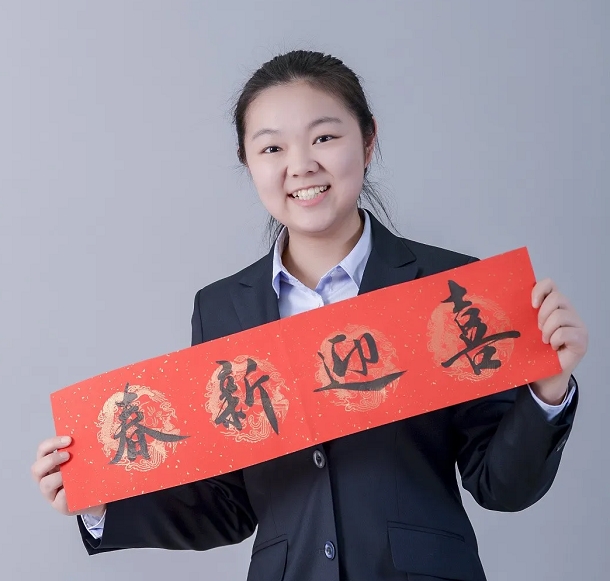 春新迎喜